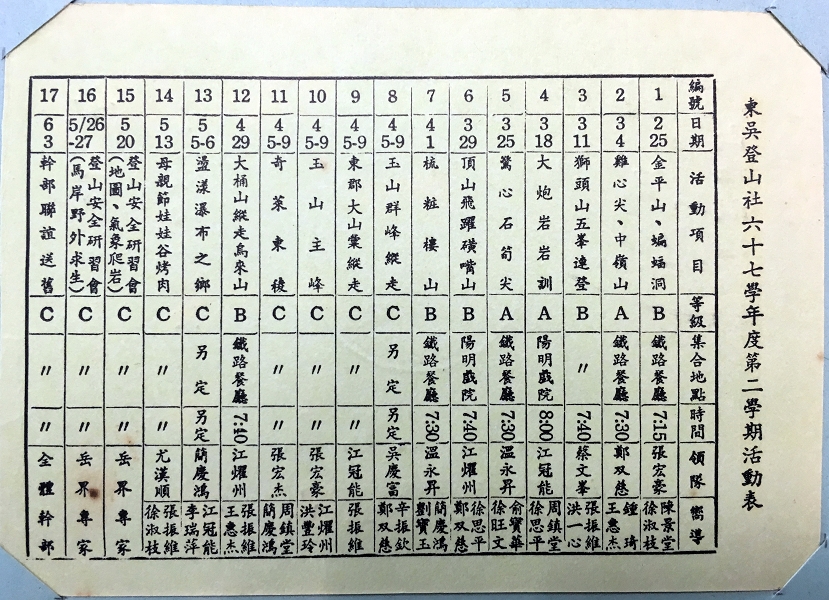 東吳登山社六十七學年度第二學期活動表
編號 日期 活動項目 等級 集合地點 時間 領隊 嚮導
1 2 25 金平山、蝙蝠洞 B 鐵路餐廳 7:15 張宏豪 陳景堂 徐淑枝
2 3 4 雞心尖、中嶺山 A 鐵路餐廳 7:30 鄭双慈 鍾琦 王惠杰
3 3 11 獅頭山五峯連登 B 〃 7:40 蔡文峯 張振維 洪一心
4 3 18 大炮岩岩訓 A 陽明戲院 8:00 江冠能 周鎮堂 徐思平
5 3 25 驚心石筍尖 A 鐵路餐廳 7:30 溫永昇 俞寶華 徐旺文
6 3 29 頂山飛躍磺嘴山 B 陽明戲院 7:40 江燿州 徐思平 鄭双慈
7 4 1 梳粧樓山 B 鐵路餐廳 7:30 溫永昇 簡慶鴻 劉寶玉
8 4 5-9 玉山群峰縱走 C 另定 另定 吳慶富 辛振欽 鄭双慈
9 4 5-9 東郡大山彙縱走 C 〃 〃 江冠能 張振維
10 4 5-9 玉山主峰 C 〃 〃 張宏豪 江燿州 洪豐玲
11 4 5-9 奇萊東稜 C 〃 〃 張宏杰 周鎮堂 簡慶鴻
12 4 29 大桶山縱走烏來山 B 鐵路餐廳 7:40 江燿州 張振維 王惠杰
13 5 5-6 盪漾瀑布之鄉 C 另定 另定 簡慶鴻 江冠能 李瑞萍
14 5 13 母親節娃娃谷烤肉 C 〃 〃 尤漢順 張振維 徐淑枝
15 5 20 登山安全研習會 (地圖、氣象爬岩) C 〃 〃 岳界專家
16 5/26 -27 登山安全研習會 (馬岸野外求生) C 〃 〃 岳界專家
17 6 3 幹部聯誼送舊 C 〃 〃 全體幹部